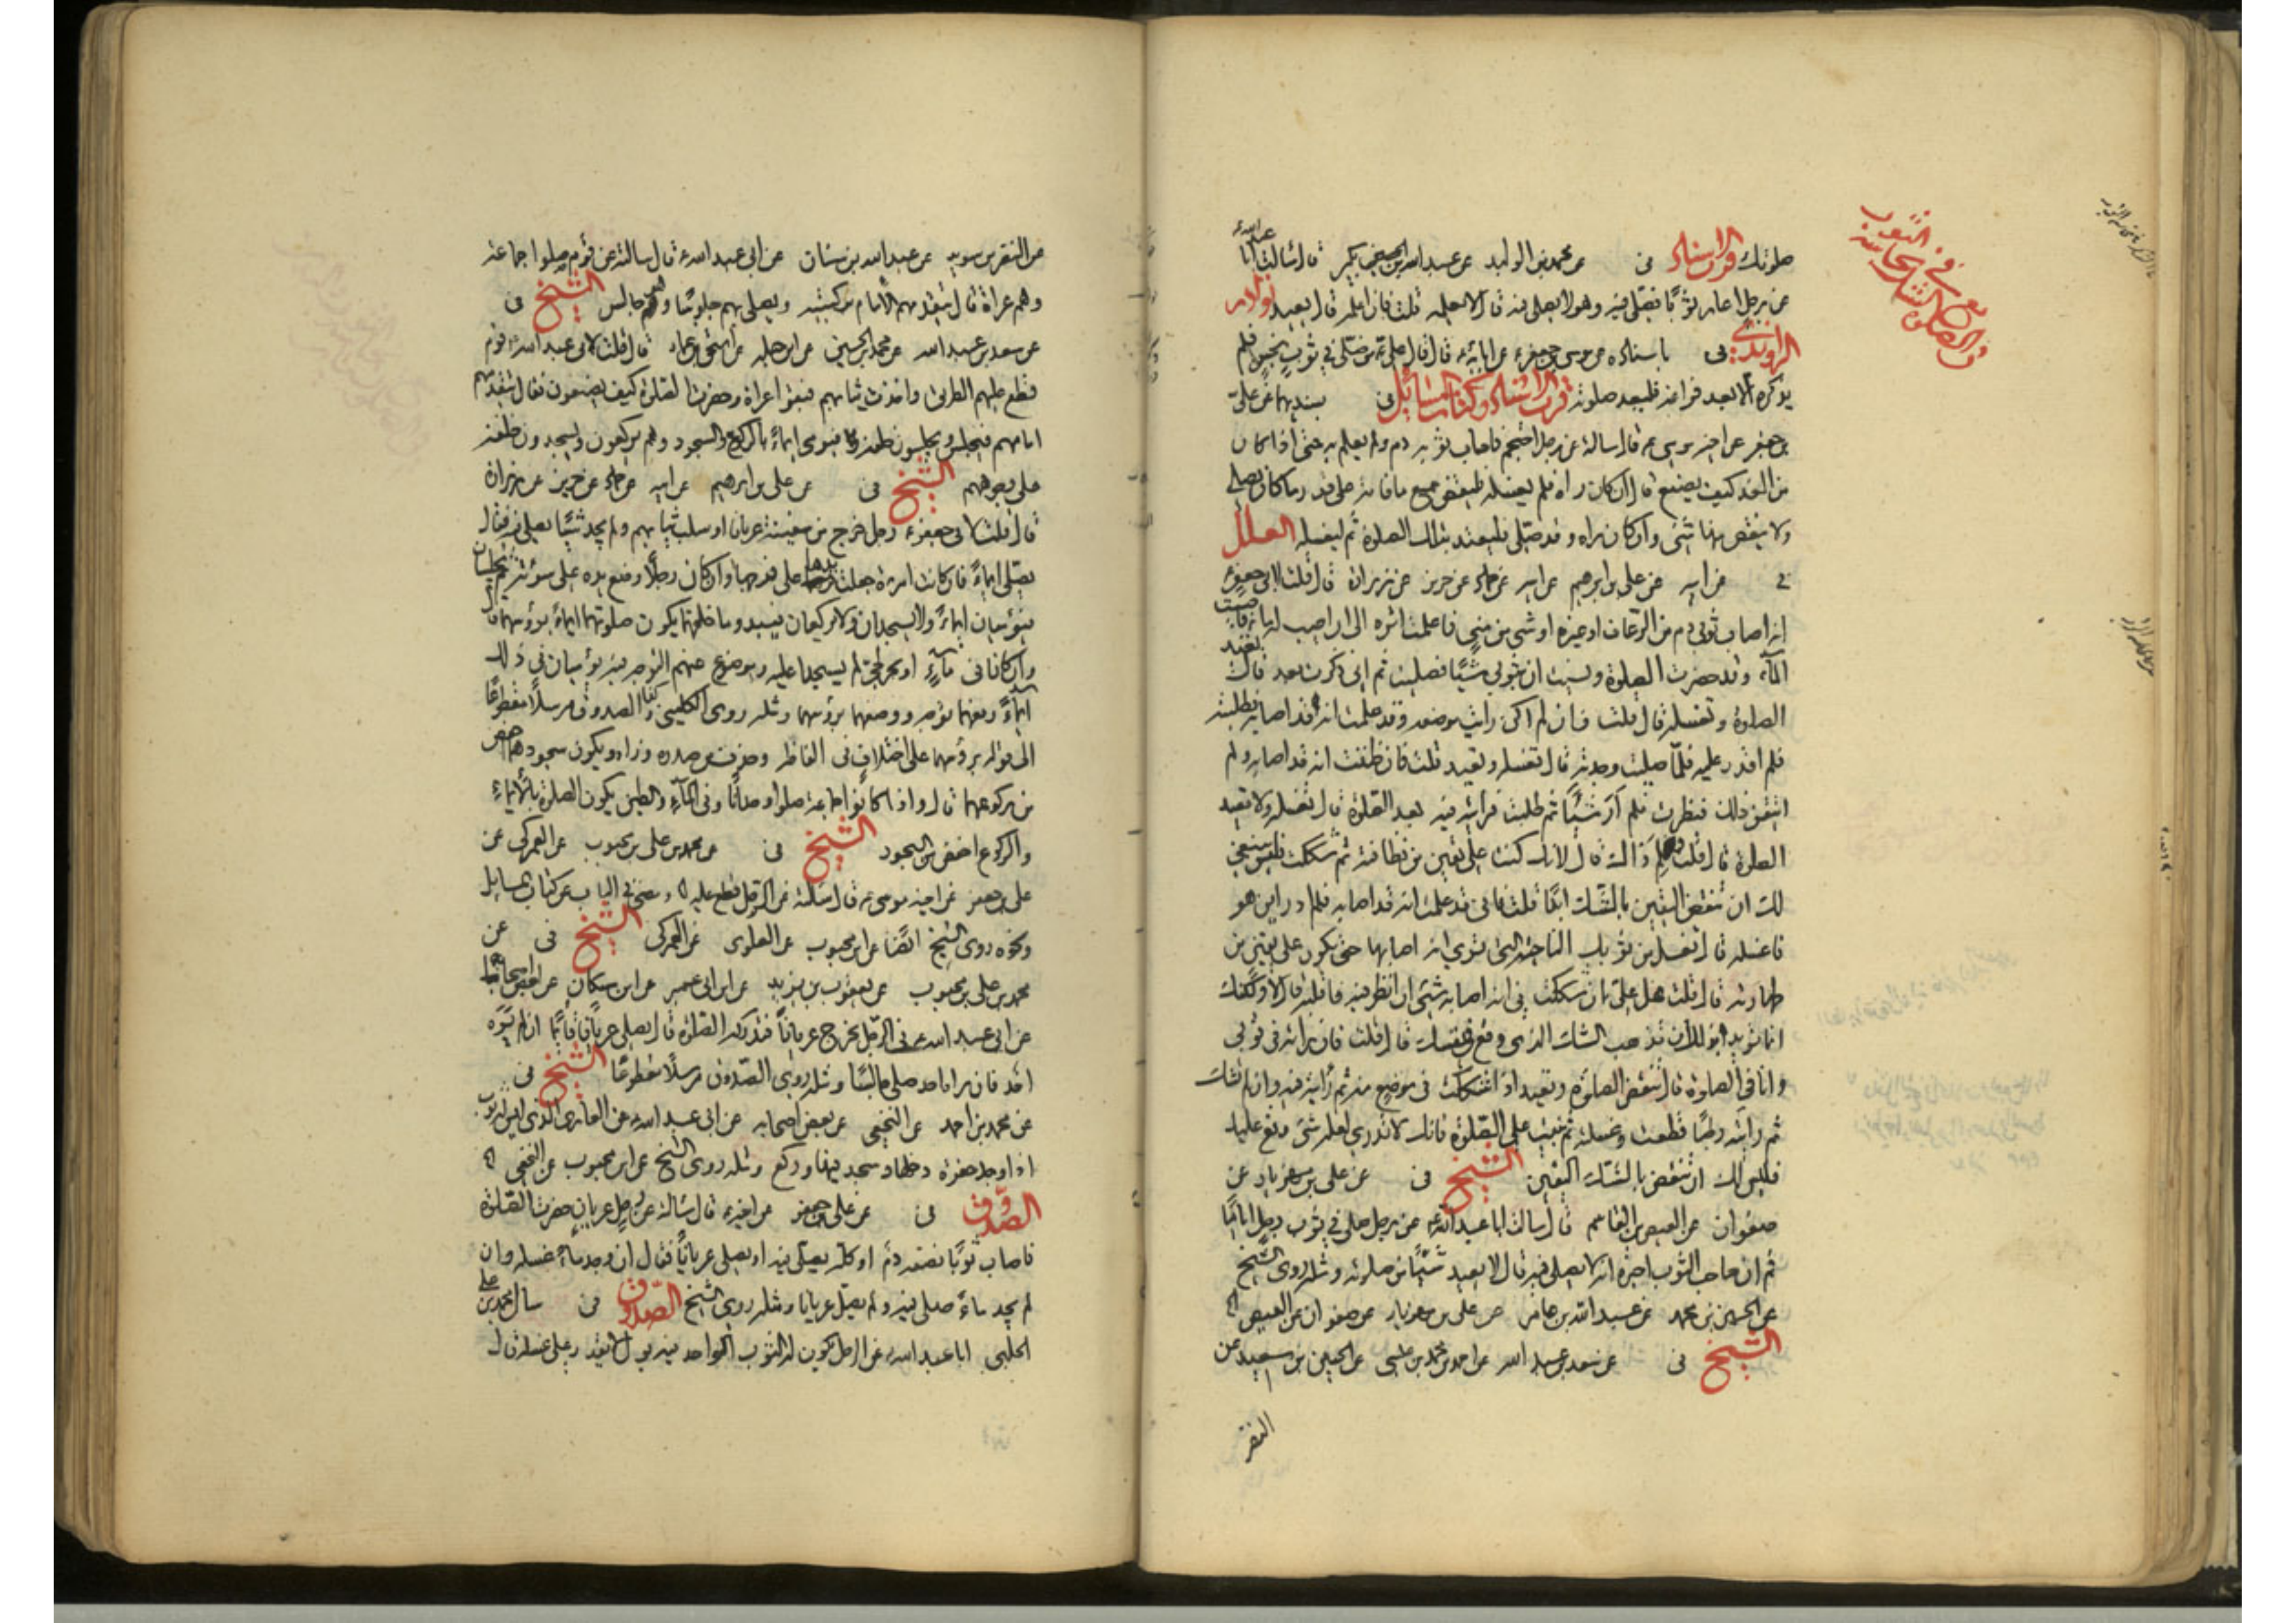 صلوتك قرب الاسناد فى عن محمد بن الوليد عن عبد الله بن بكير قال سالت ابا
عبد الله ع
عن رجل اعار رجلا ثوبا فصلى فيه وهو لا يصلى فيه قال لا يعلمه قلت فان اعلمه قال يعيد نوادر
الراوندى فى باسناده عن موسى بن جعفر ع عن ابائه ع قال قال على ع من صلى فى ثوب نجس فلم
يذكره الا بعد فراغه فليعد صلوته قرب الاسناد وكتاب المسائل فى بسنديهما عن على
بن جعفر عن اخيه موسى ع قال سالته عن رجل احتجم فاصاب ثوبه دم ولم يعلم به حتى اذا كان
من الغد كيف يصنع قال ان كان راه فلم يغسله فليقض جميع ما فاته على قدر ما كان يصلى
ولا ينقص منها شئ وان كان راه وقد صلى فليعتد بتلك الصلوة ثم ليغسله العلل
فى عن ابيه عن على بن ابرهيم عن ابيه عن حماد عن حريز عن زرارة قال قلت لابى جعفر ع
انه اصاب ثوبى دم من الرعاف او غيره او شئ من منى فاعلمت اثره الى ان اصيب له ماء فاصبت
الماء وقد حضرت الصلوة ونسيت ان بثوبى شيئا فصليت ثم انى ذكرت بعد قال تعيد
الصلوة وتغسله قال قلت فان لم اكن رايت موضعه وقد علمت انه قد اصابه فطلبته
فلم اقدر عليه فلما صليت وجدته قال تغسله وتعيد قلت فان ظننت انه قد اصابه ولم
اتيقن ذلك فنظرت فلم ار شيئا ثم طلبت فرايته فيه بعد الصلوة قال تغسله ولا تعيد
الصلوة قال قلت ولم ذاك قال لانك كنت على يقين من نظافته ثم شككت فليس ينبغى
لك ان تنقض اليقين بالشك ابدا قلت فانى قد علمت انه قد اصابه فلم ادر اين هو
فاغسله قال تغسل من ثوبك الناحية التى ترى انه اصابها حتى تكون على يقين من
طهارته قال قلت هل على ان شككت فى انه اصابه شئ ان انظر فيه فاقلبه قال لا ولكنك
انما تريد بذلك ان تذهب الشك الذى وقع فى نفسك قال قلت فان رايته فى ثوبى
وانا فى الصلوة قال تنقض الصلوة وتعيد اذا شككت فى موضع منه ثم رايته فيه وان لم تشك
ثم رايته رطبا قطعت وغسلته ثم بنيت على الصلوة فانك لا تدرى لعله شئ وقع عليك
فليس لك ان تنقض بالشك اليقين الشيخ فى عن على بن مهزيار عن
صفوان عن العيص بن القاسم قال سالت ابا عبد الله ع عن رجل صلى فى ثوب رجل اياما
ثم ان صاحب الثوب اخبره انه لا يصلى فيه قال لا يعيد شيئا من صلوته ومثله روى الشيخ
عن الحسين بن محمد عن عبد الله بن عامر عن على بن مهزيار عن صفوان عن العيص
الشيخ فى عن سعد بن عبد الله عن احمد بن محمد بن عيسى عن الحسين بن سعيد عن
النضر
عن النضر بن سويد عن عبد الله بن سنان عن ابى عبد الله ع قال سالته عن قوم صلوا جماعة
وهم عراة قال يتقدمهم الامام بركبتيه ويصلى بهم جلوسا وهو جالس الشيخ فى
عن سعد بن عبد الله عن محمد بن الحسين عن ابن جبله عن اسحق بن عمار قال قلت لابى عبد الله ع قوم
قطع عليهم الطريق واخذت ثيابهم فبقوا عراة وحضرت الصلوة كيف يصنعون فقال يتقدمهم
امامهم فيجلس ويجلسون خلفه فيومى ايماء بالركوع والسجود وهم يركعون ويسجدون خلفه
على وجوههم الشيخ فى عن على بن ابرهيم عن ابيه عن حماد عن حريز عن زرارة
قال قلت لابى جعفر ع رجل خرج من سفينة عريانا او سلب ثيابه ولم يجد شيئا يصلى فيه فقال
يصلى ايماء فان كانت امراة جعلت يدها على فرجها وان كان رجلا وضع يده على سوئته ثم يجلسان
فيؤميان ايماء ولا يسجدان ولا يركعان فيبدو ما خلفهما يكون صلوتهما ايماء برؤسهما قال
وان كانا فى ماء او بحر لجى لم يسجدا عليه وموضوع عنهم التوجه فيه يؤميان فى ذلك
ايماء رفعهما توجه ووضعهما برؤسهما ومثله روى الكلينى وكذا الصدوق مرسلا مقطوعا
الى قوله برؤسهما على اختلاف فى الفاظه وحذف من صدره وزاد ويكون سجودهما اخفض
من ركوعهما قال واذا كانوا جماعة صلوا وحدانا وفى الماء والطين يكون الصلوة بالايماء
والركوع اخفض من السجود الشيخ فى عن محمد بن على بن محبوب عن العمركى عن
على بن جعفر عن اخيه موسى ع قال سالته عن الرجل قطع عليه ومضى فى الباب عن كتاب المسايل
ونحوه روى الشيخ ايضا عن ابن محبوب عن العلوى عن العمركى الشيخ فى عن
محمد بن على بن محبوب عن يعقوب بن يزيد عن ابن ابى عمير عن ابن مسكان عن بعض اصحابنا
عن ابى عبد الله ع فى الرجل يخرج عريانا فتدركه الصلوة قال يصلى عريانا قائما ان لم يره
احد فان راه احد صلى جالسا ومثله روى الصدوق مرسلا مقطوعا الشيخ فى
عن محمد بن احمد عن النخعى عن بعض اصحابه عن ابى عبد الله ع عن العارى الذى ليس له ثوب
اذا وجد حفرة دخلها وسجد فيها وركع ومثله روى الشيخ عن ابن محبوب عن النخعى
الصدوق فى عن على بن جعفر عن اخيه ع قال سالته عن رجل عريان حضرت الصلوة
فاصاب ثوبا نصفه دم او كله يصلى فيه او يصلى عريانا فقال ان وجد ماء غسله وان
لم يجد ماء صلى فيه ولم يصل عريانا ومثله روى الشيخ الصدوق فى سال محمد بن على
الحلبى ابا عبد الله ع عن الرجل يكون له الثوب الواحد فيه بول لا يقدر على غسله قال